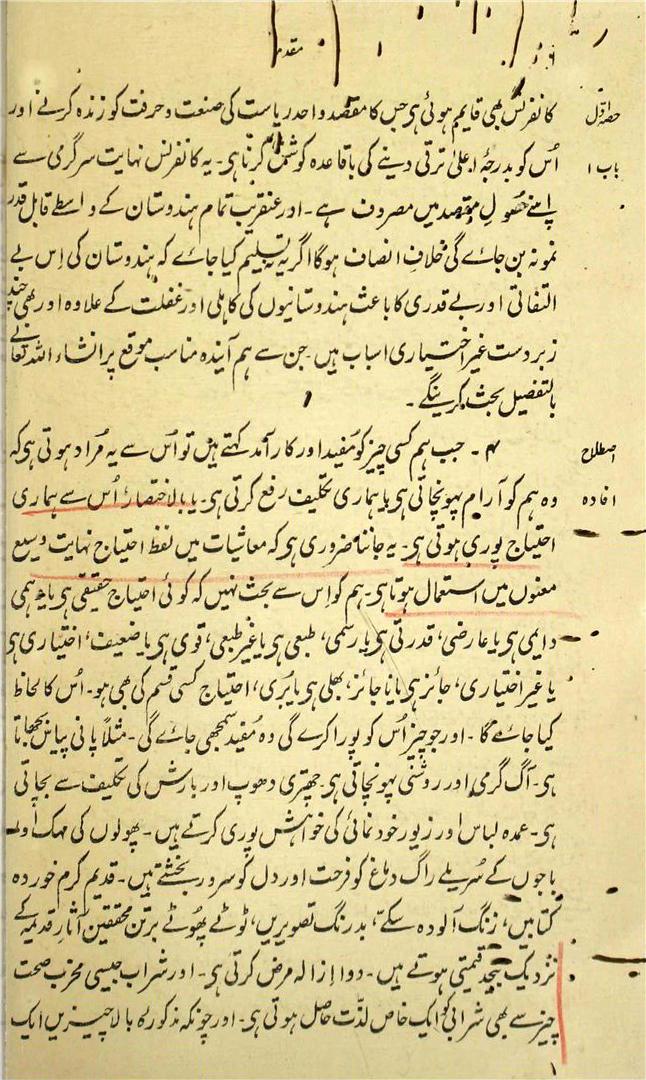 مقدمہ
حصہ اول
باب ۱
کانفرنس بھی قایم ہوئی ہی جس کا مقصد واحد ریاست کی صنعت و حرفت کو زندہ کرنے اور
اُس کو بدرجۂ اعلیٰ ترقی دینے کی باقاعدہ کوشش کرنا ہی۔ یہ کانفرنس نہایت سرگرمی سے
اپنے حُصُولِ مقصد میں مصروف ہے۔ اور عنقریب تمام ہندوستان کے واسطے قابل قدر
نمونہ بن جائے گی خلافِ انصاف ہوگا اگر یہ تسلیم کیا جائے کہ ہندوستان کی اِس بے
التفاتی اور بے قدری کا باعث ہندوستانیوں کی کاہلی اور غفلت کے علاوہ اور بھی چند
زبردست غیر اختیاری اسباب ہیں جن سے ہم آیندہ مناسب موقع پر انشاء اللہ تعالیٰ
بالتفصیل بحث کرینگے۔
اصطلاح
افادہ
۴۔ جب ہم کسی چیز کو مُفید اور کارآمد کہتے ہیں تو اُس سے یہ مُراد ہوتی ہی کہ
وہ ہم کو آرام پہونچاتی ہی یا ہماری تکلیف رفع کرتی ہی۔ یا بالاختصار اُس سے ہماری
احتیاج پوری ہوتی ہی۔ یہ جاننا ضروری ہی کہ معاشیات میں لفظ احتیاج نہایت وسیع
معنوں میں استعمال ہوتا ہی۔ ہم کو اِس سے بحث نہیں کہ کوئی احتیاج حقیقی ہی یا وہمی
دایمی ہی یا عارضی، قدرتی ہی یا رسمی، طبعی ہی یا غیر طبعی، قوی ہی یا ضعیف، اختیاری ہی
یا غیر اختیاری، جائز ہی یا نا جائز، بھلی ہی یا بُری، احتیاج کسی قسم کی بھی ہو۔ اُس کا لحاظ
کیا جائے گا۔ اور جو چیز اُس کو پورا کرے گی وہ مُفید سمجھی جائے گی۔ مثلاً پانی پیاس بجھاتا
ہی۔ آگ گرمی اور روشنی پہونچاتی ہی۔ چھتری دھوپ اور بارش کی تکلیف سے بچاتی
ہی۔ عمدہ لباس اور زیور خود نمائی کی خواہش پوری کرتے ہیں۔ پھولوں کی مہک اور
باجوں کے سُریلے راگ دماغ کو فرحت اور دل کو سرور بخشتے ہیں۔ قدیم کرم خوردہ
کتابیں، زنگ آلودہ سکّے، بدرنگ تصویریں، ٹوٹے پھُوٹے برتن محققین آثارِ قدیمہ کے
نزدیک بیحد قیمتی ہوتے ہیں۔ دوا ازالہ مرض کرتی ہی۔ اور شراب جیسی مخرّب صحت
چیز سے بھی شرابی کو ایک خاص لذّت حاصل ہوتی ہی۔ اور چونکہ مذکورہ بالا چیزیں ایک